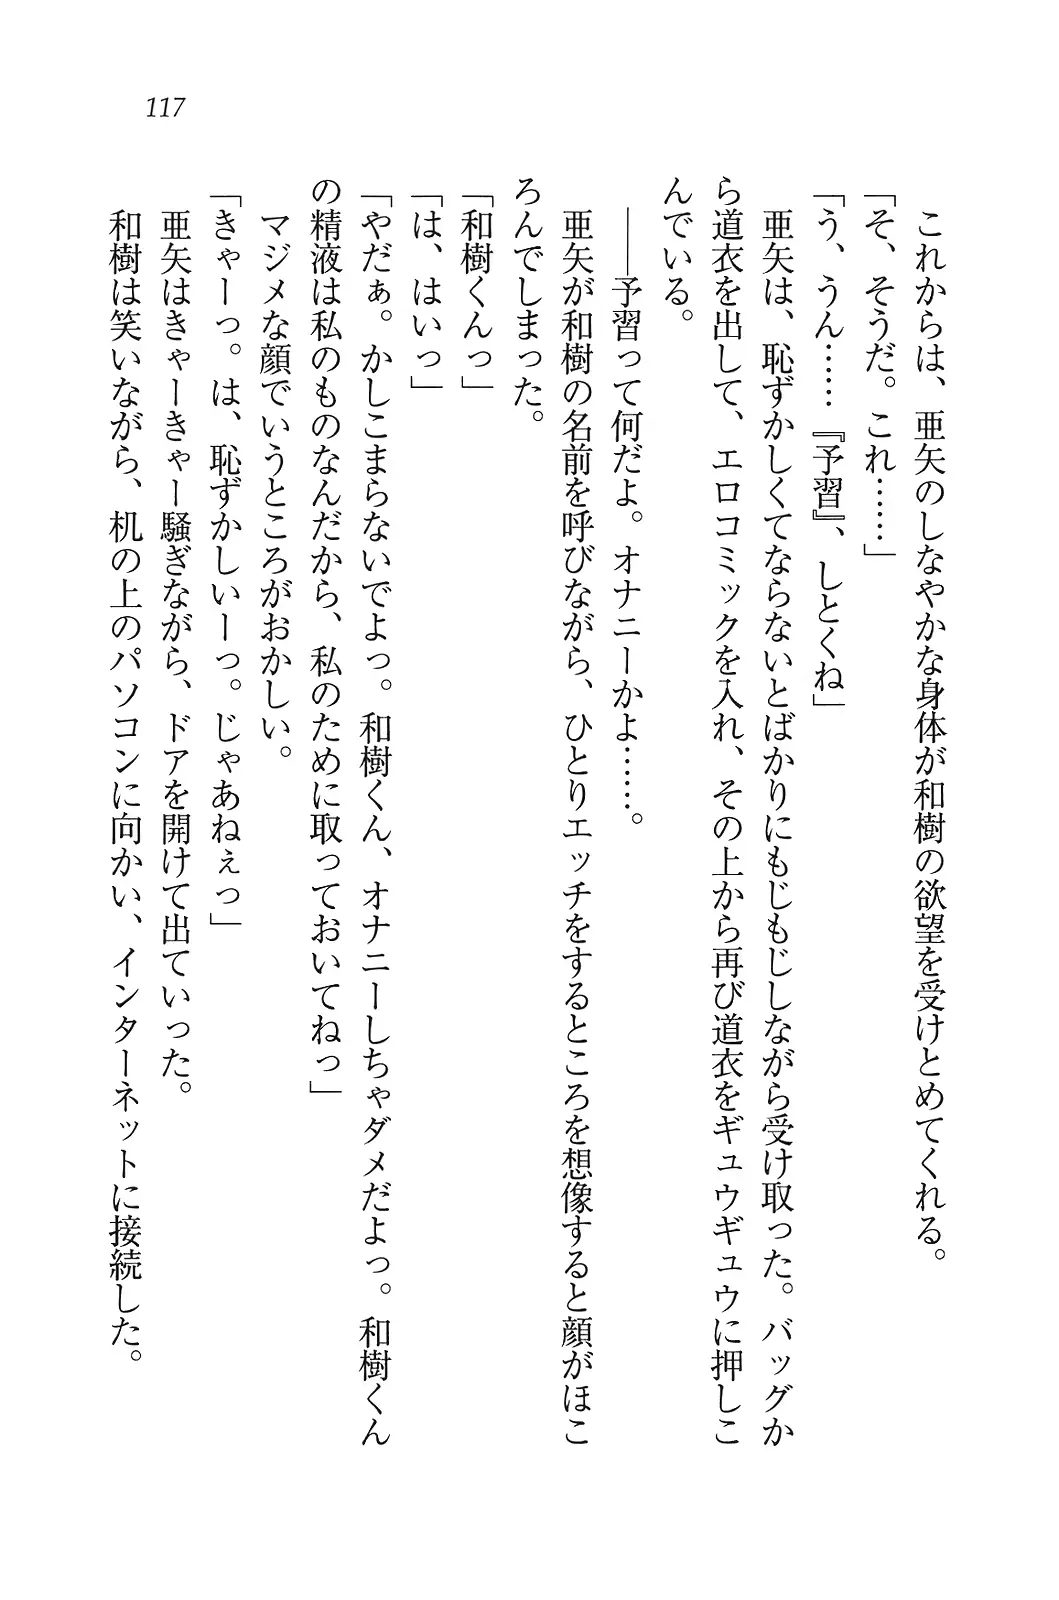 117
これからは、亜矢のしなやかな身体が和樹の欲望を受けとめてくれる。
「そ、そうだ。これ……」
「う、うん……『予習』、しとくね」
亜矢は、恥ずかしくてならないとばかりにもじもじしながら受け取った。バッグか
ら道衣を出して、エロコミックを入れ、その上から再び道衣をギュウギュウに押しこ
んでいる。
――予習って何だよ。オナニーかよ……。
亜矢が和樹の名前を呼びながら、ひとりエッチをするところを想像すると顔がほこ
ろんでしまった。
「和樹くんっ」
「は、はいっ」
「やだぁ。かしこまらないでよっ。和樹くん、オナニーしちゃダメだよっ。和樹くん
の精液は私のものなんだから、私のために取っておいてねっ」
マジメな顔でいうところがおかしい。
「きゃーっ。は、恥ずかしいーっ。じゃあねぇっ」
亜矢はきゃーきゃー騒ぎながら、ドアを開けて出ていった。
和樹は笑いながら、机の上のパソコンに向かい、インターネットに接続した。